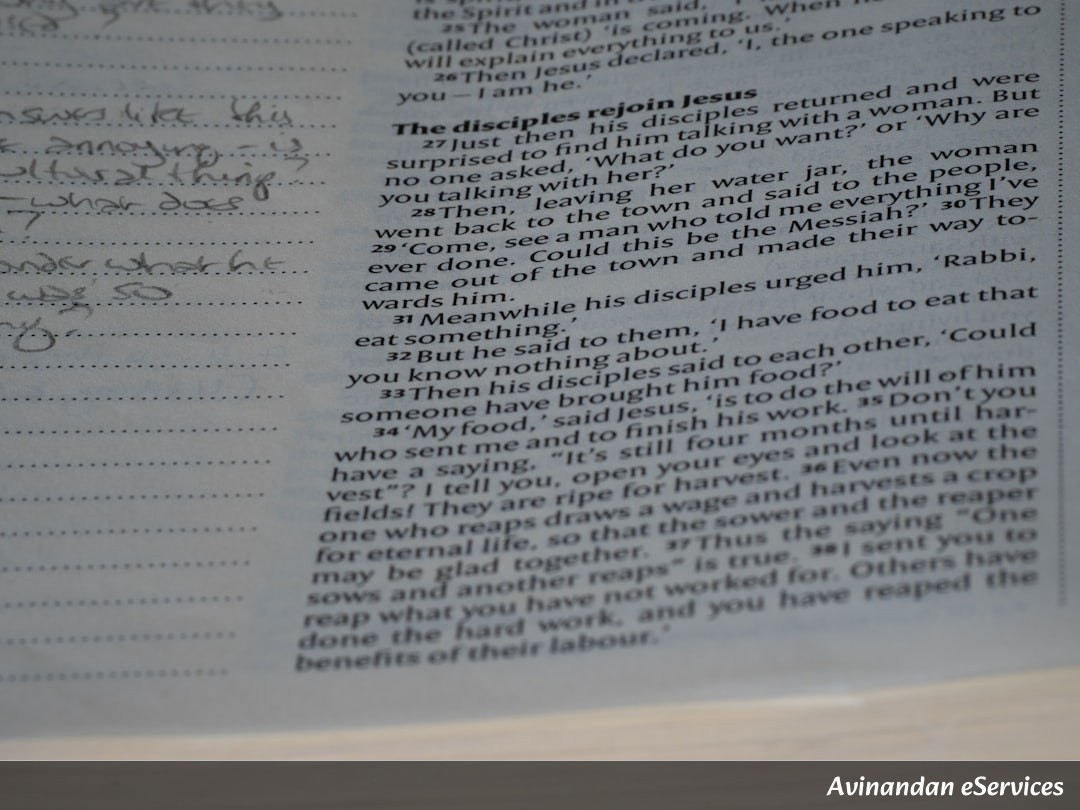 nswers like this
annoying, – is
ultural thing?
– what does
?
onder what he
was so
the Spirit and in
25 The woman said, 'I
(called Christ) 'is coming. When he
will explain everything to us.'
26 Then Jesus declared, 'I, the one speaking to
you – I am he.'
The disciples rejoin Jesus
27 Just then his disciples returned and were
surprised to find him talking with a woman. But
no one asked, 'What do you want?' or 'Why are
you talking with her?'
28 Then, leaving her water jar, the woman
went back to the town and said to the people,
29 'Come, see a man who told me everything I've
ever done. Could this be the Messiah?' 30 They
came out of the town and made their way to-
wards him.
31 Meanwhile his disciples urged him, 'Rabbi,
eat something.'
32 But he said to them, 'I have food to eat that
you know nothing about.'
33 Then his disciples said to each other, 'Could
someone have brought him food?'
34 'My food,' said Jesus, 'is to do the will of him
who sent me and to finish his work. 35 Don't you
have a saying, "It's still four months until har-
vest"? I tell you, open your eyes and look at the
fields! They are ripe for harvest. 36 Even now the
one who reaps draws a wage and harvests a crop
for eternal life, so that the sower and the reaper
may be glad together. 37 Thus the saying "One
sows and another reaps" is true. 38 I sent you to
reap what you have not worked for. Others have
done the hard work, and you have reaped the
benefits of their labour.'
Avinandan eServices